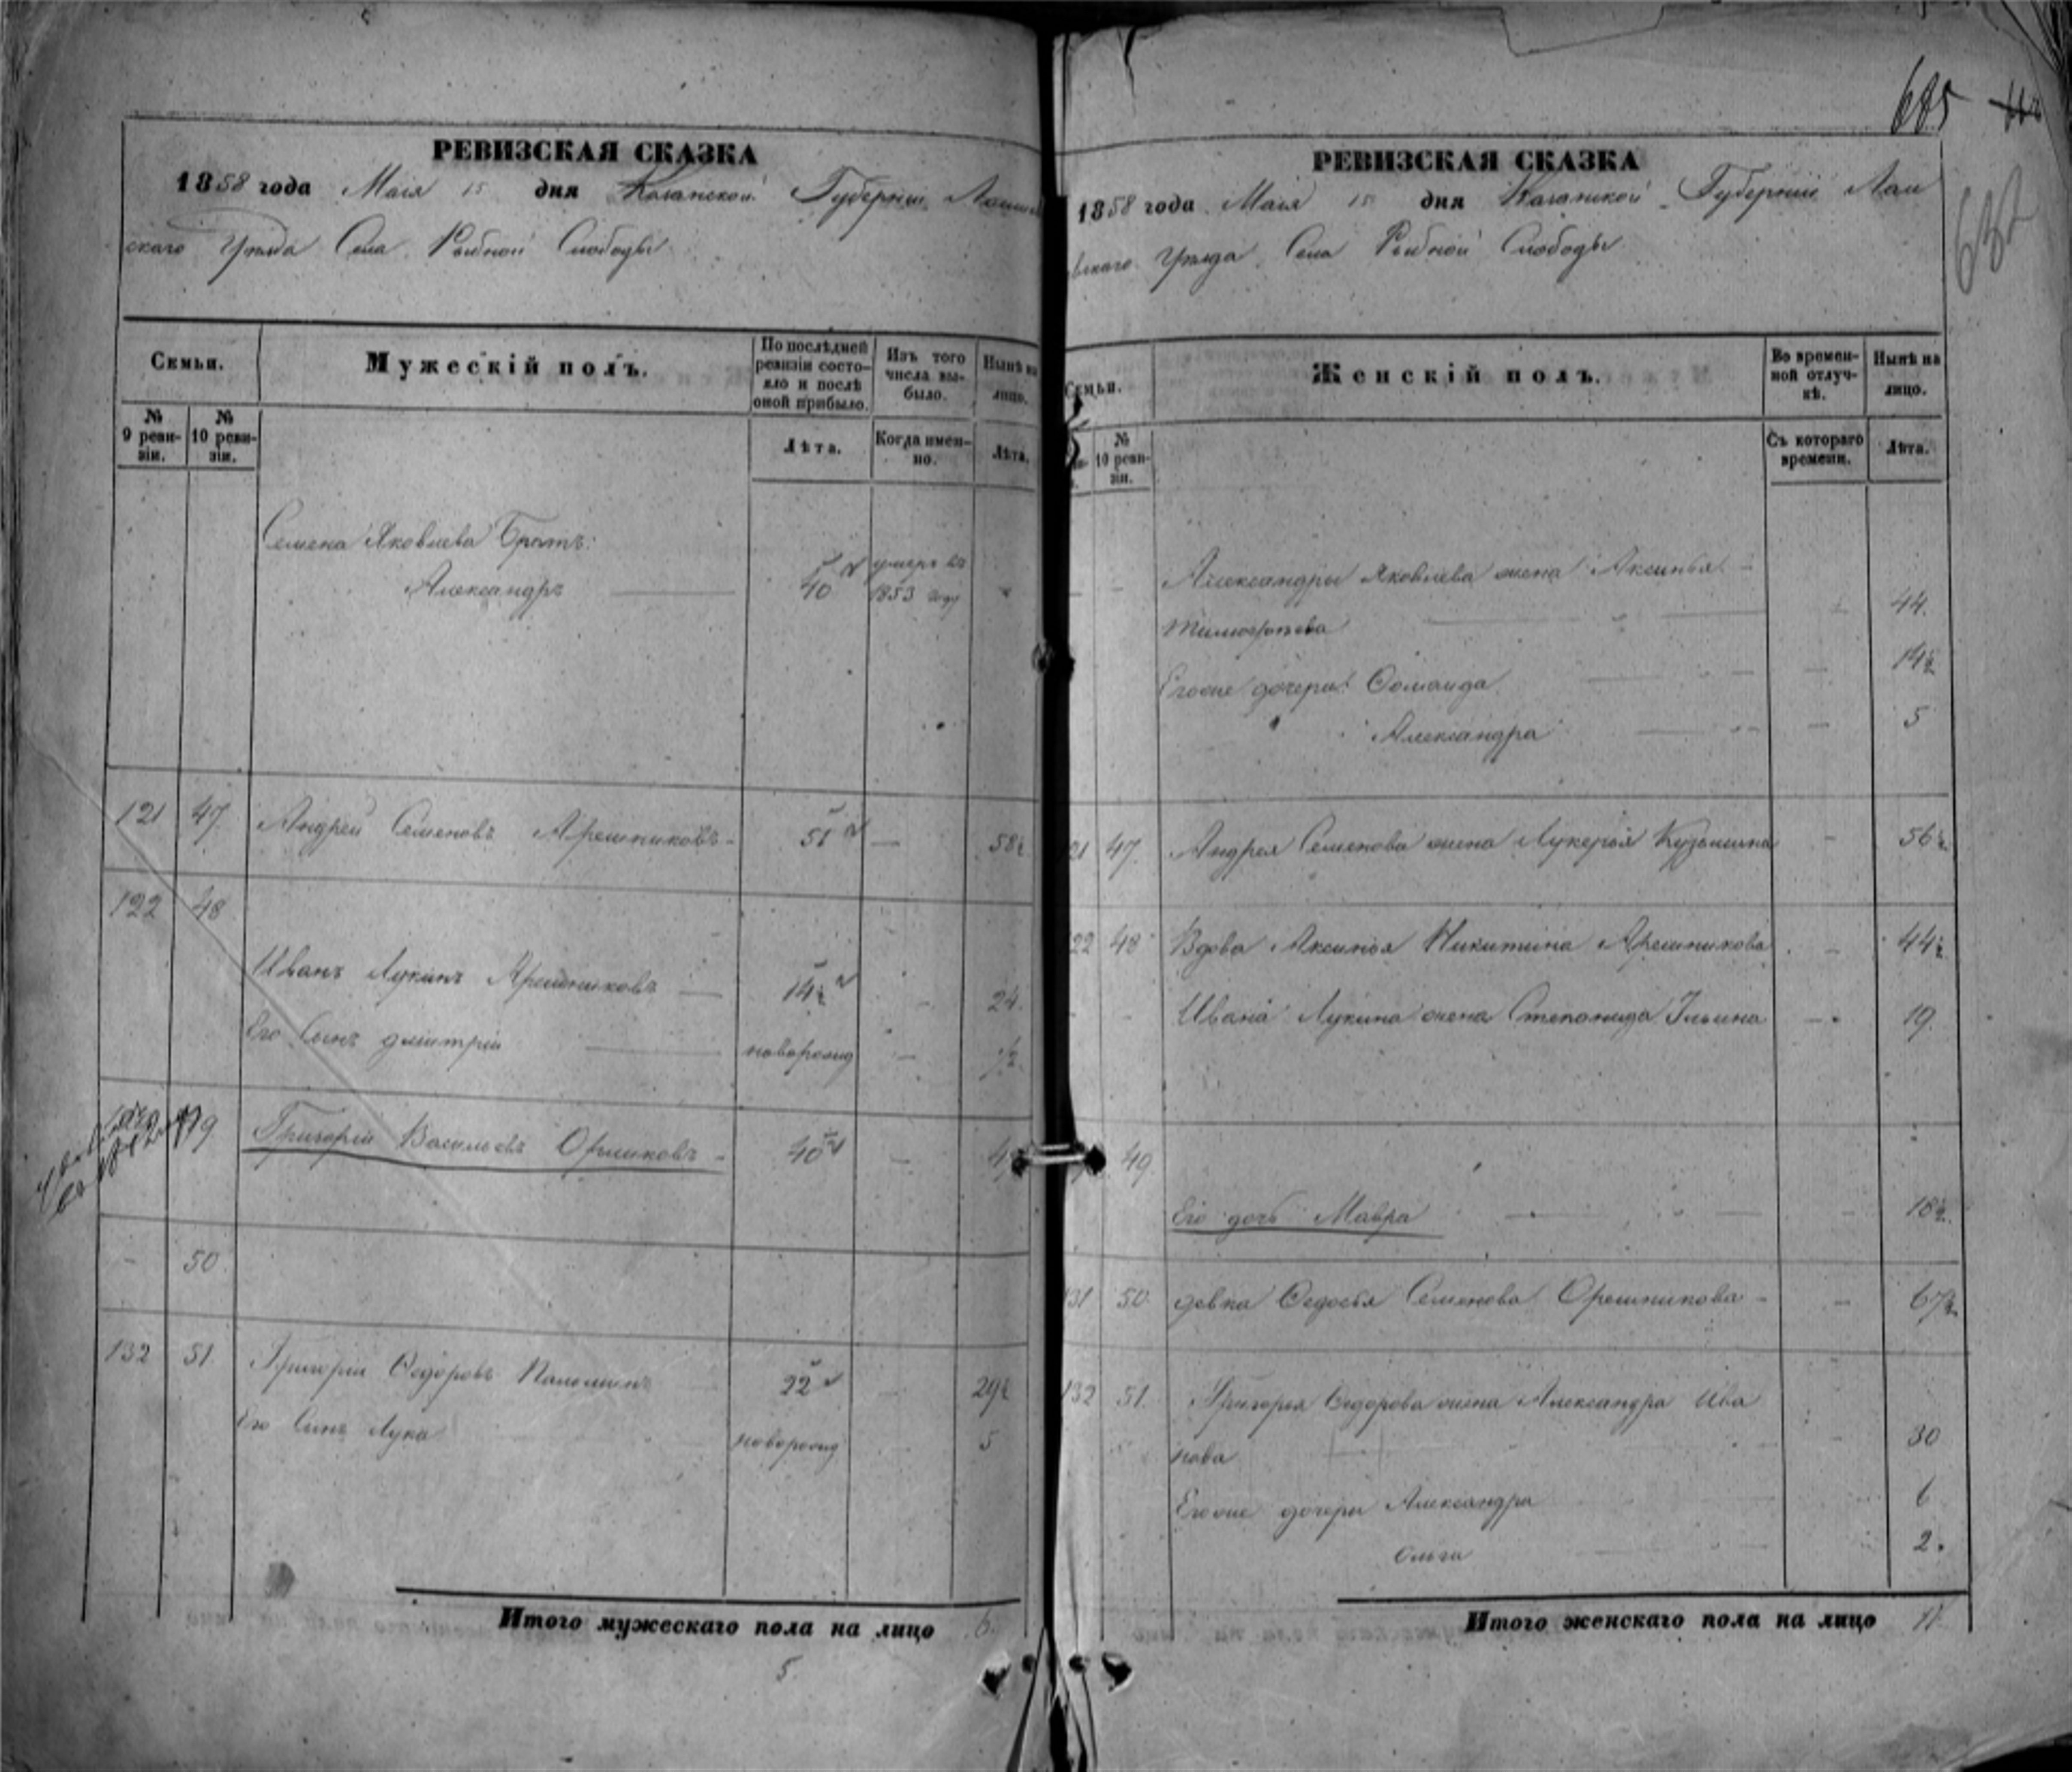 685
РЕВИЗСКАЯ СКАЗКА
1858 года Маія 15 дня Казанской Губерніи Лаишев
скаго Уѣзда Села Рыбной Слободы
Семьи.
Мужескій полъ.
По послѣдней ревизіи состояло и послѣ оной прибыло.
Изъ того числа выбыло.
Нынѣ на лицо.
№ 9 ревизіи.
№ 10 ревизіи.
Лѣта.
Когда именно.
Лѣта.
Семена Яковлева Братъ:
Александръ 40 умеръ въ 1853 году
121 47. Андрей Семеновъ Арешниковъ 51 — 58½
122 48
Иванъ Лукинъ Арешниковъ — 14½ — 24.
Его Сынъ дмитрій новорожд — ½
49 Григорій Васильевъ 40 —
- 50.
132 51 Григорій Ѳедоровъ 22 29½
Его Сынъ Лука новорожд 5
Итого мужескаго пола на лицо 6.
5.
РЕВИЗСКАЯ СКАЗКА
1858 года Маія 15 дня Казанской Губерніи Лаи
шевскаго Уѣзда Села Рыбной Слободы
Семьи.
Женскій полъ.
Во временной отлучкѣ.
Нынѣ на лицо.
№ 10 ревизіи.
Съ котораго времени.
Лѣта.
Александры Яковлева жена Аксинья
Тимофѣева 44.
Егоже дочери: 14½
Александра — 5
121 47. Андрея Семенова жена Лукерья Кузьмина - 56½
122 48 Вдова Аксинья Никитина Арешникова - 44½
Ивана Лукина жена Степанида Ильина — 19.
49.
Его дочь Мавра 18½.
131 50. девка Ѳедосья Семенова Орешникова — 67½
132 51. Григорья Ѳедорова жена Александра Ива
нова 30
Егоже дочери Александра 6
Ольга 2.
Итого женскаго пола на лицо 11